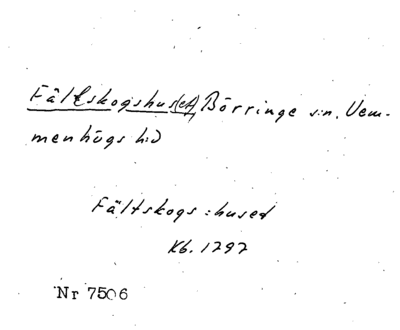 Fältskogshus(et) Börringe sn. Vem-
menhögs hd
Fältskogs:hused
Kb. 1797
Nr 7506